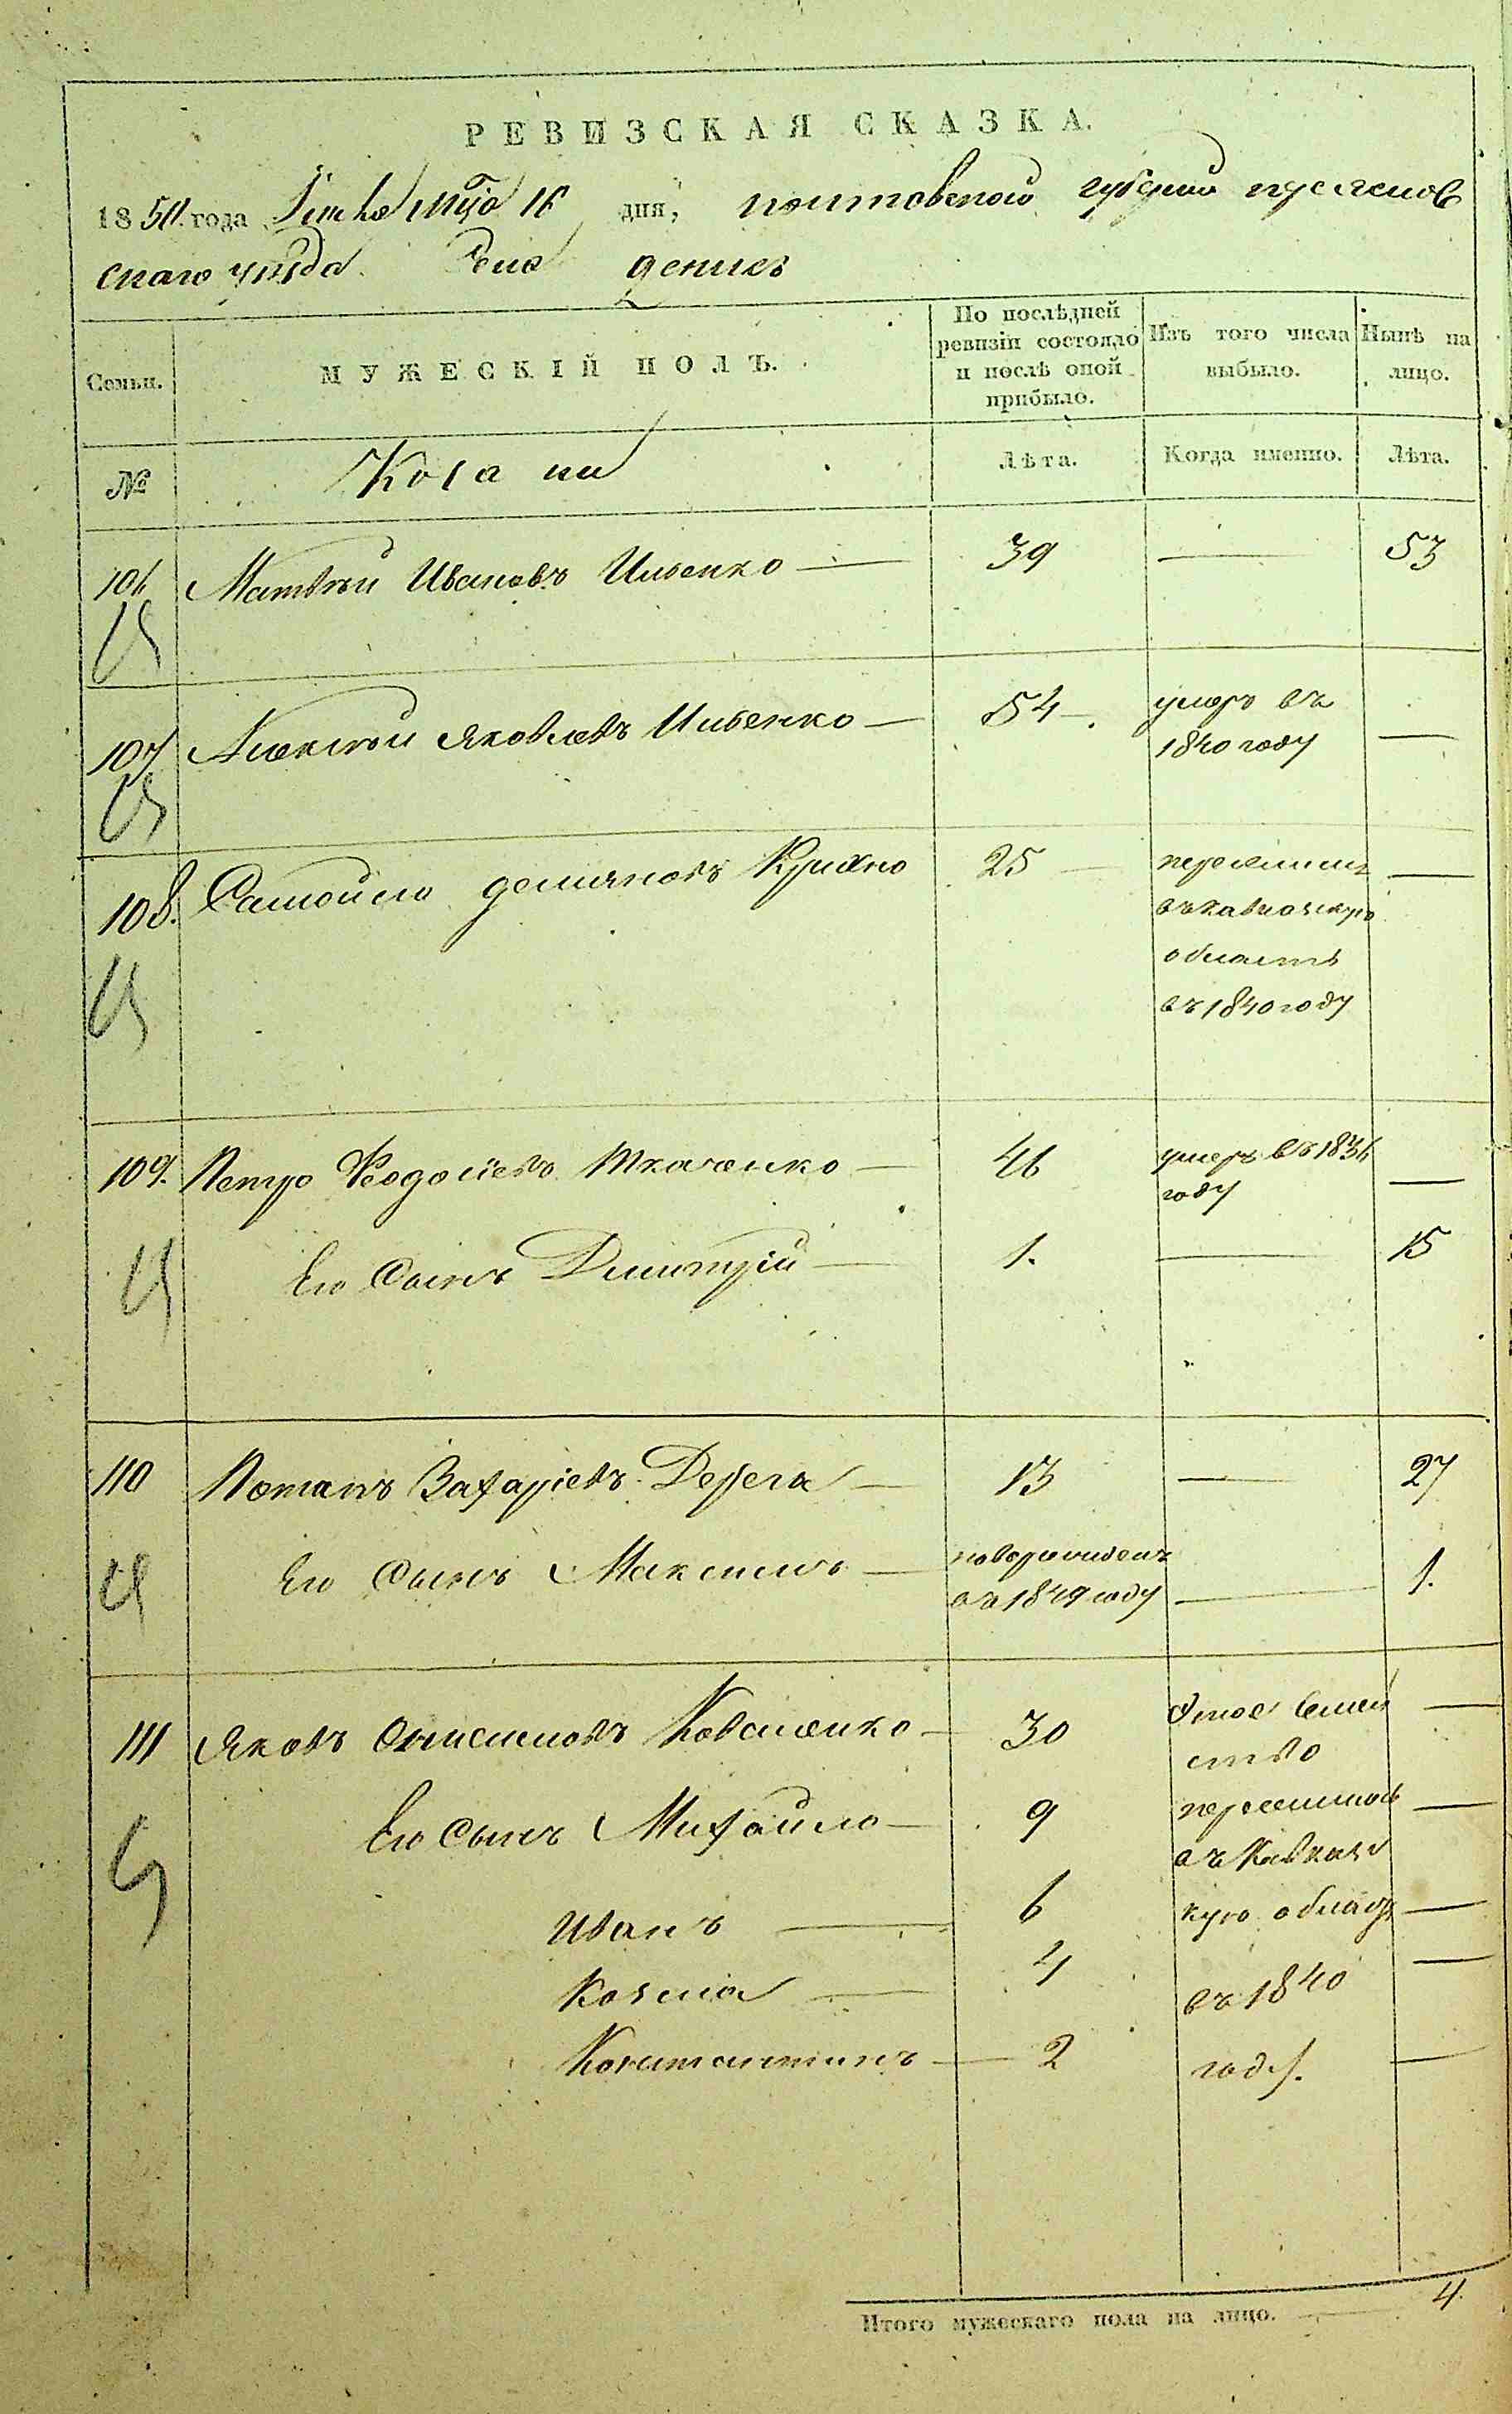 РЕВИЗСКАЯ СКАЗКА.
1850 года 16 дня, полтавской губернии переяслов
скаго уезда Села денисъ
Семьи.
МУЖЕСКІЙ ПОЛЪ.
По послѣдней ревизіи состояло и послѣ оной прибыло.
Изъ того числа выбыло.
Нынѣ на лицо.
№
Козаки
Лѣта.
Когда именно.
Лѣта.
106 Матвѣй Ивановъ Ильенко — 39 — 53
107 Алексѣй Яковлевъ Ильенко — 54 —
умеръ въ
1840 году
108. Самойло демяновъ Крихно 25 —
переселилъ
въ кавказскую
область
въ 1840 году
109. Петро Феодосіевъ Ткаченко — 46 —
умеръ въ 1836
году
Его Сынъ Дмитрій — 1. — 15
110 Потапъ Захаріевъ Дерега — 13 — 27
Его Сынъ Максимъ — — 1.
новорожденъ
въ 1849 году
111 Яковъ Онисимовъ Коваленко — 30 —
Этое Семей
ство
Его Сынъ Михайло — 9 —
переселилось
въ Кавказс
Иванъ — 6 —
кую область
Козма — 4 —
въ 1840
Константинъ — 2 —
году.
Итого мужескаго пола на лицо. — 4.